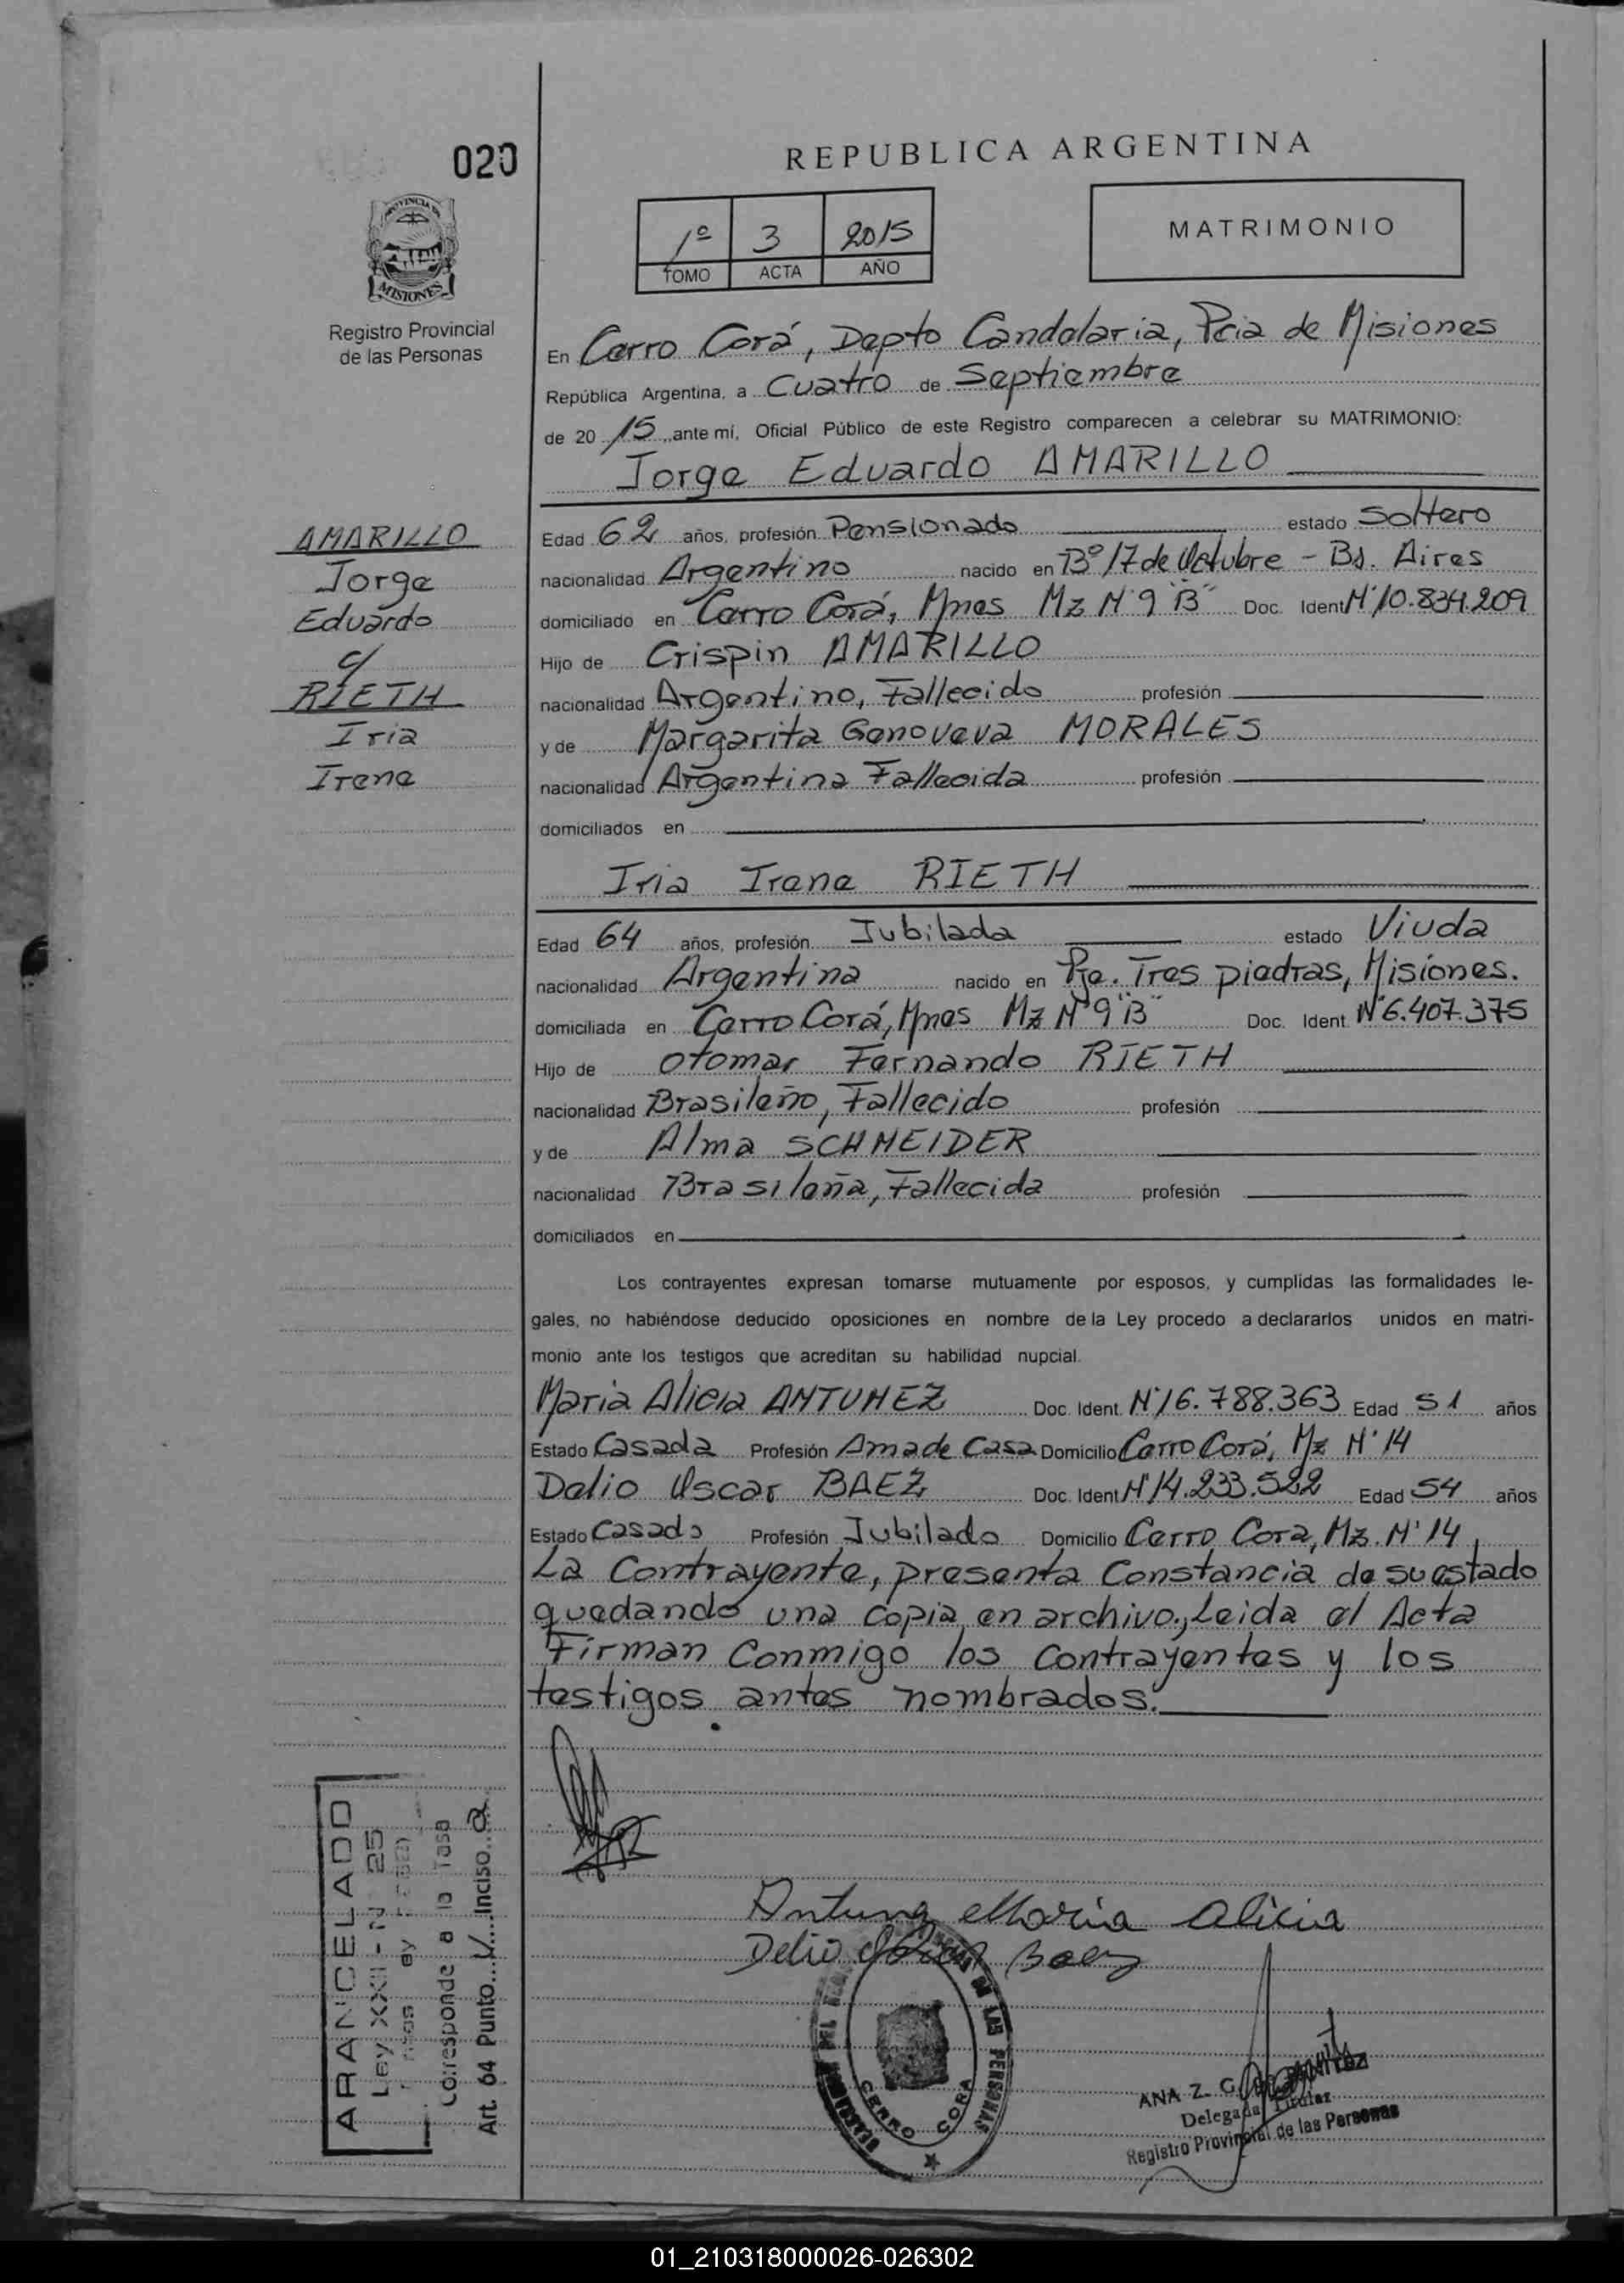 020
REPUBLICA ARGENTINA
PROVINCIA DE
MISIONES
Registro Provincial
de las Personas
1º 3 2015
TOMO ACTA AÑO
MATRIMONIO
En Cerro Corá, Depto Candelaria, Pcia de Misiones
República Argentina, a Cuatro de Septiembre
de 20 15, ante mí, Oficial Público de este Registro comparecen a celebrar su MATRIMONIO:
Jorge Eduardo AMARILLO
AMARILLO
Jorge
Eduardo
c/
RIETH
Iria
Irene
Edad 62 años, profesión Pensionado estado Soltero
nacionalidad Argentino nacido en Bº 17 de Octubre - Bs. Aires
domiciliado en Cerro Corá, Mnes Mz Nº 9 "B" Doc. Ident Nº 10.834.209
Hijo de Crispin AMARILLO
nacionalidad Argentino, Fallecido profesión
y de Margarita Genoveva MORALES
nacionalidad Argentina Fallecida profesión
domiciliados en
Iria Irene RIETH
Edad 64 años, profesión Jubilada estado Viuda
nacionalidad Argentina nacido en Pje. Tres piedras, Misiones.
domiciliada en Cerro Corá, Mnes Mz Nº 9 "B" Doc. Ident. Nº 6.407.375
Hijo de Otomar Fernando RIETH
nacionalidad Brasileño, Fallecido profesión
y de Alma SCHNEIDER
nacionalidad Brasileña, Fallecida profesión
domiciliados en
Los contrayentes expresan tomarse mutuamente por esposos, y cumplidas las formalidades le-
gales, no habiéndose deducido oposiciones en nombre de la Ley procedo a declararlos unidos en matri-
monio ante los testigos que acreditan su habilidad nupcial.
Maria Alicia ANTUNEZ Doc. Ident. Nº 16.788.363 Edad 51 años
Estado Casada Profesión Ama de Casa Domicilio Cerro Corá, Mz Nº 14
Delio Oscar BAEZ Doc. Ident Nº 14.233.522 Edad 54 años
Estado Casado Profesión Jubilado Domicilio Cerro Cora, Mz. Nº 14
La Contrayente, presenta Constancia de su estado
quedando una copia en archivo., Leida el Acta
Firman Conmigo los Contrayentes y los
testigos antes nombrados.
ARANCELADO
Ley XXII - N 25
Corresponde a la Tasa
Art. 64 Punto 1/ Inciso a
Antunez Maria Alicia
Delio Oscar Baez
DE LAS PERSONAS
CERRO CORA
ANA Z. G.
Delegada Titular
Registro Provincial de las Personas
01_210318000026-026302